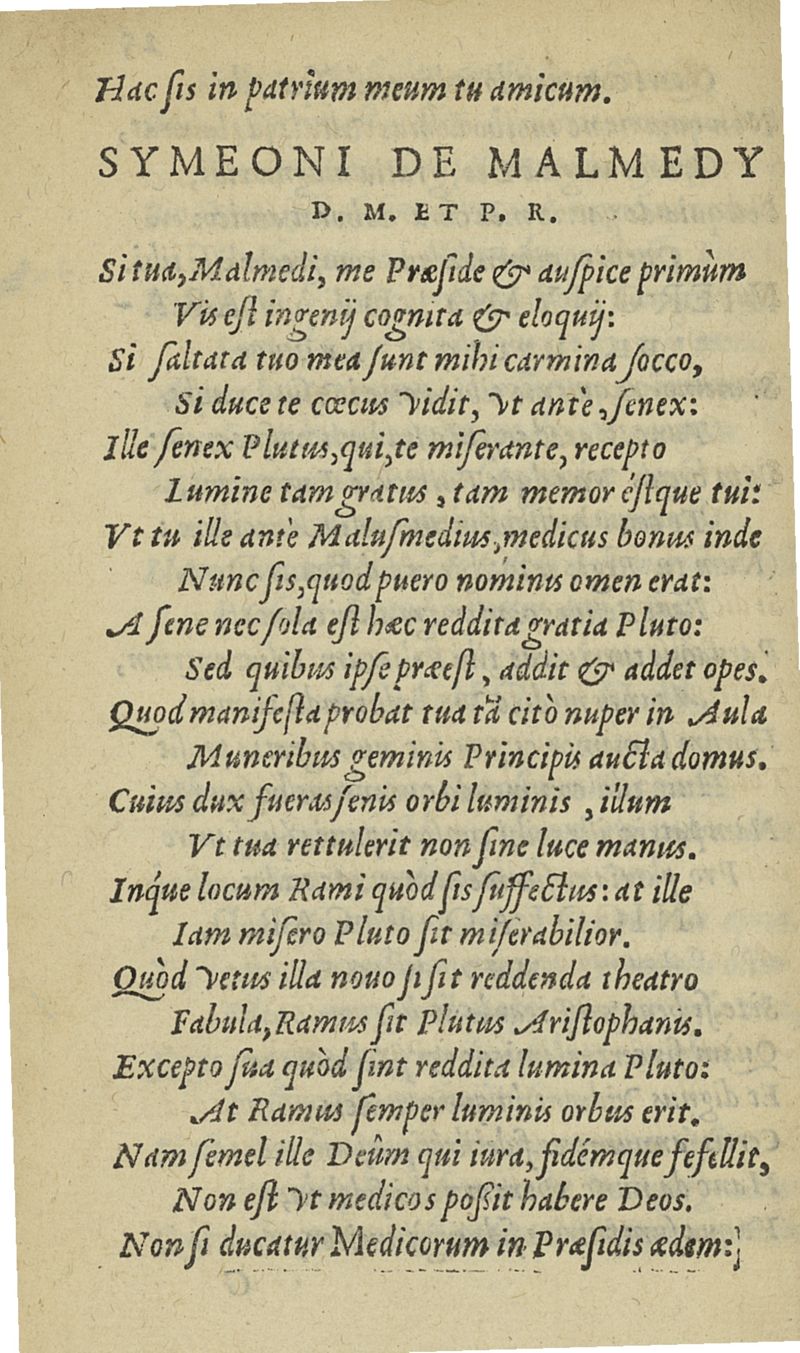 Hac ſis in patrium meum tu amicum.
SYMEONI DE MALMEDY
D. M. ET P. R.
Si tua, Malmedi, me Præſide & auſpice primùm
Vis eſt ingenij cognita & eloquij:
Si ſaltata tuo mea ſunt mihi carmina ſocco,
Si duce te cœcus vidit, vt antè, ſenex:
Ille ſenex Plutus, qui, te miſerante, recepto
Lumine tam gratus, tam memor éſtque tui:
Vt tu ille antè Maluſmedius, medicus bonus inde
Nunc ſis, quod puero nominis omen erat:
A ſene nec ſola eſt hæc reddita gratia Pluto:
Sed quibus ipſe præeſt, addit & addet opes.
Quod manifeſta probat tua tā citò nuper in Aula
Muneribus geminis Principis aucta domus.
Cuius dux fueras ſenis orbi luminis, illum
Vt tua rettulerit non ſine luce manus.
Inq́ue locum Rami quòd ſis ſuffectus: at ille
Iam miſero Pluto ſit miſerabilior.
Quòd vetus illa nouo ſi ſit reddenda theatro
Fabula, Ramus ſit Plutus Ariſtophanis.
Excepto ſua quòd ſint reddita lumina Pluto:
At Ramus ſemper luminis orbus erit.
Nam ſemel ille Deûm qui iura, fidémque fefellit,
Non eſt vt medicos poſsit habere Deos.
Non ſi ducatur Medicorum in Præſidis ædem: